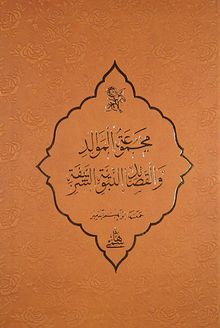 مجموعة الموالد
والقصائد النبوية الشريفة